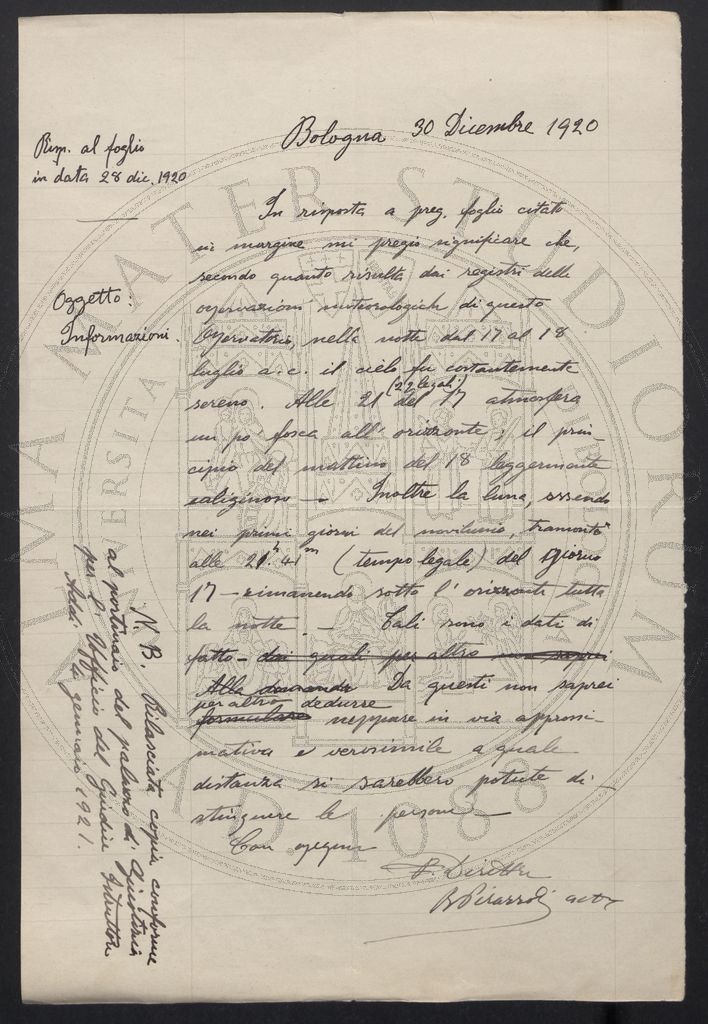 Bologna 30 Dicembre 1920
Risp. al foglio
in data 28 dic. 1920
Oggetto:
Informazioni.
In risposta a preg. foglio citato
in margine mi pregio significare che,
secondo quanto risulta dai registri delle
osservazioni meteorologiche di questo
Osservatorio, nella notte dal 17 al 18
luglio a.c. il cielo fu costantemente
sereno. Alle 21 (22 legali) del 17 atmosfera
un po fosca all'orizzonte; il prin-
cipio del mattino del 18 leggermente
caliginoso — Inoltre la luna, essendo
nei primi giorni del novilunio, tramontò
alle 21h. 41m (tempo legale) del giorno
17 — rimanendo sotto l'orizzonte tutta
la notte. — Tali sono i dati di
fatto — dai quali per altro non saprei
Alla domanda Da questi non saprei
per altro dedurre
formulare neppure in via approssi-
mativa e verosimile a quale
distanza si sarebbero potute di-
stinguere le persone —
Con ossequi
Il Direttore
N. B. Rilasciata copia conforme
al portinaio del palazzo di Giustizia
per l'Ufficio del Giudice Istruttore
Addì gennaio 1921.
ALMA MATER STUDIORUM
A.D. 1088